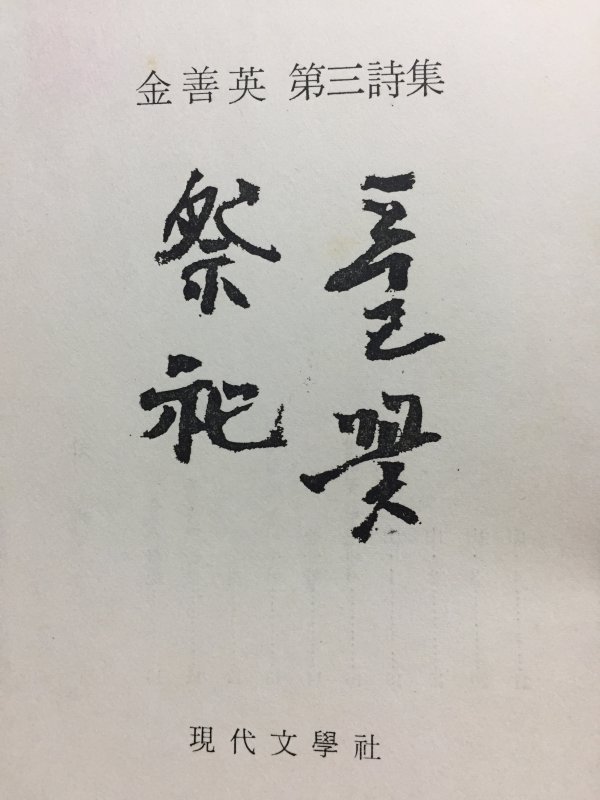 金善英 第三詩集
풀꽃
祭祀
現代文學社